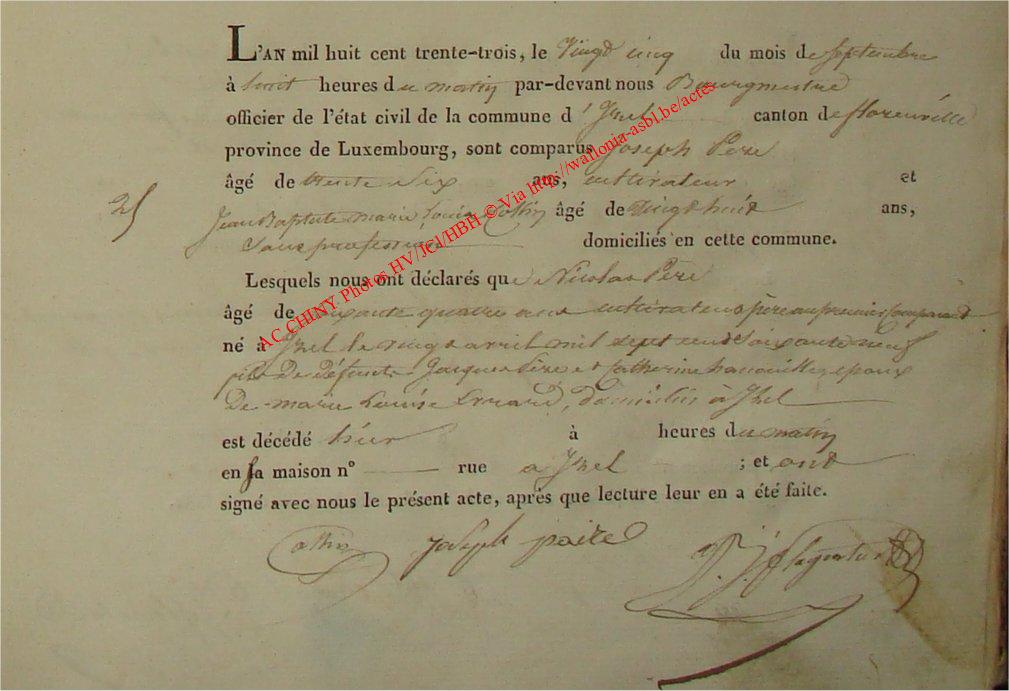 L'AN mil huit cent trente-trois, le vingt cinq du mois de septembre
à huit heures du matin par-devant nous Bourgmestre
officier de l'état civil de la commune d'Izel canton de florenville
province de Luxembourg, sont comparus Joseph Pere
âgé de trente six ans, cultivateur et
25
Jean Baptiste marie Louis Collin âgé de vingt huit ans,
Sans profession domiciliés en cette commune.
Lesquels nous ont déclarés que Nicolas Pere
âgé de soixante quatre ans cultivateur père au premier comparant
né à Izel le vingt avril mil sept cent soixante neuf
fils de défunts Jacques Père et Catherine époux
De marie Louise Errard, domicilié à Izel
est décédé hier à heures du matin
en sa maison n° rue a Izel ; et ont
signé avec nous le présent acte, après que lecture leur en a été faite.
Collin Joseph paire
AC CHINY Photos HV/JCl/HBH © Via http://wallonia-asbl.be/actes